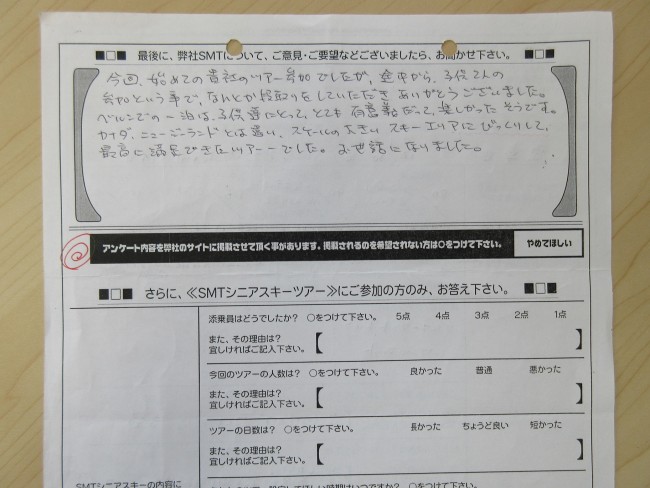 ■□■ 最後に、弊社SMTについて、ご意見・ご要望などございましたら、お聞かせ下さい。 ■□■
今回、始めての貴社のツアー参加でしたが、途中から、子供2人の
参加という事で、なにとか段取りをしていただき ありがとうございました。
ベルンでの一泊は、子供達にとって、とても有意義だって、楽しかったそうです。
カナダ、ニュージーランドとは違い、スケールの大きい スキーエリアにびっくりして、
最高に満足できたツアーでした。お世話になりました。
アンケート内容を弊社のサイトに掲載させて頂く事があります。掲載されるのを希望されない方は○をつけて下さい。 やめてほしい
■□■ さらに、≪SMTシニアスキーツアー≫にご参加の方のみ、お答え下さい。 ■□■
添乗員はどうでしたか? ○をつけて下さい。 5点 4点 3点 2点 1点
また、その理由は?
宜しければご記入下さい。
今回のツアーの人数は? ○をつけて下さい。 良かった 普通 悪かった
また、その理由は?
宜しければご記入下さい。
ツアーの日数は? ○をつけて下さい。 長かった ちょうど良い 短かった
また、その理由は?
宜しければご記入下さい。
SMTシニアスキーの内容に